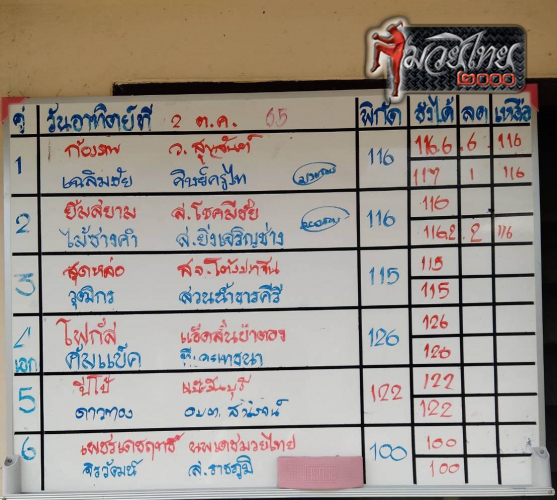 มวยไทย
๒๐๐๐
คู่ วันอาทิตย์ที่ 2 ต.ค. 65 พิกัด ชั่งได้ ลด เหลือ
1 ก้องภพ ว. สุขจันต์ 116 116.6 .6 116
เฉลิมชัย ศิษย์ครูไก่ 117 1 116
2 ยิ้มสยาม ส.โชคมีชัย 116 116
ไม้ช่างคำ ส.ยิ่งเจริญช่าง 116.2 .2 116
3 สุดหล่อ 115 115
วุฒิกร สวนน้ำธารคีรี 115
4 โฟกัส 126 126
เอก คัมแบ็ค 126
5 ปีโป้ 122 122
ดาวทอง 122
6 เพชรเดชฤทธิ์ นพเดชมวยไทย 100 100
จิรวัฒน์ ส.ราชภูมิ 100